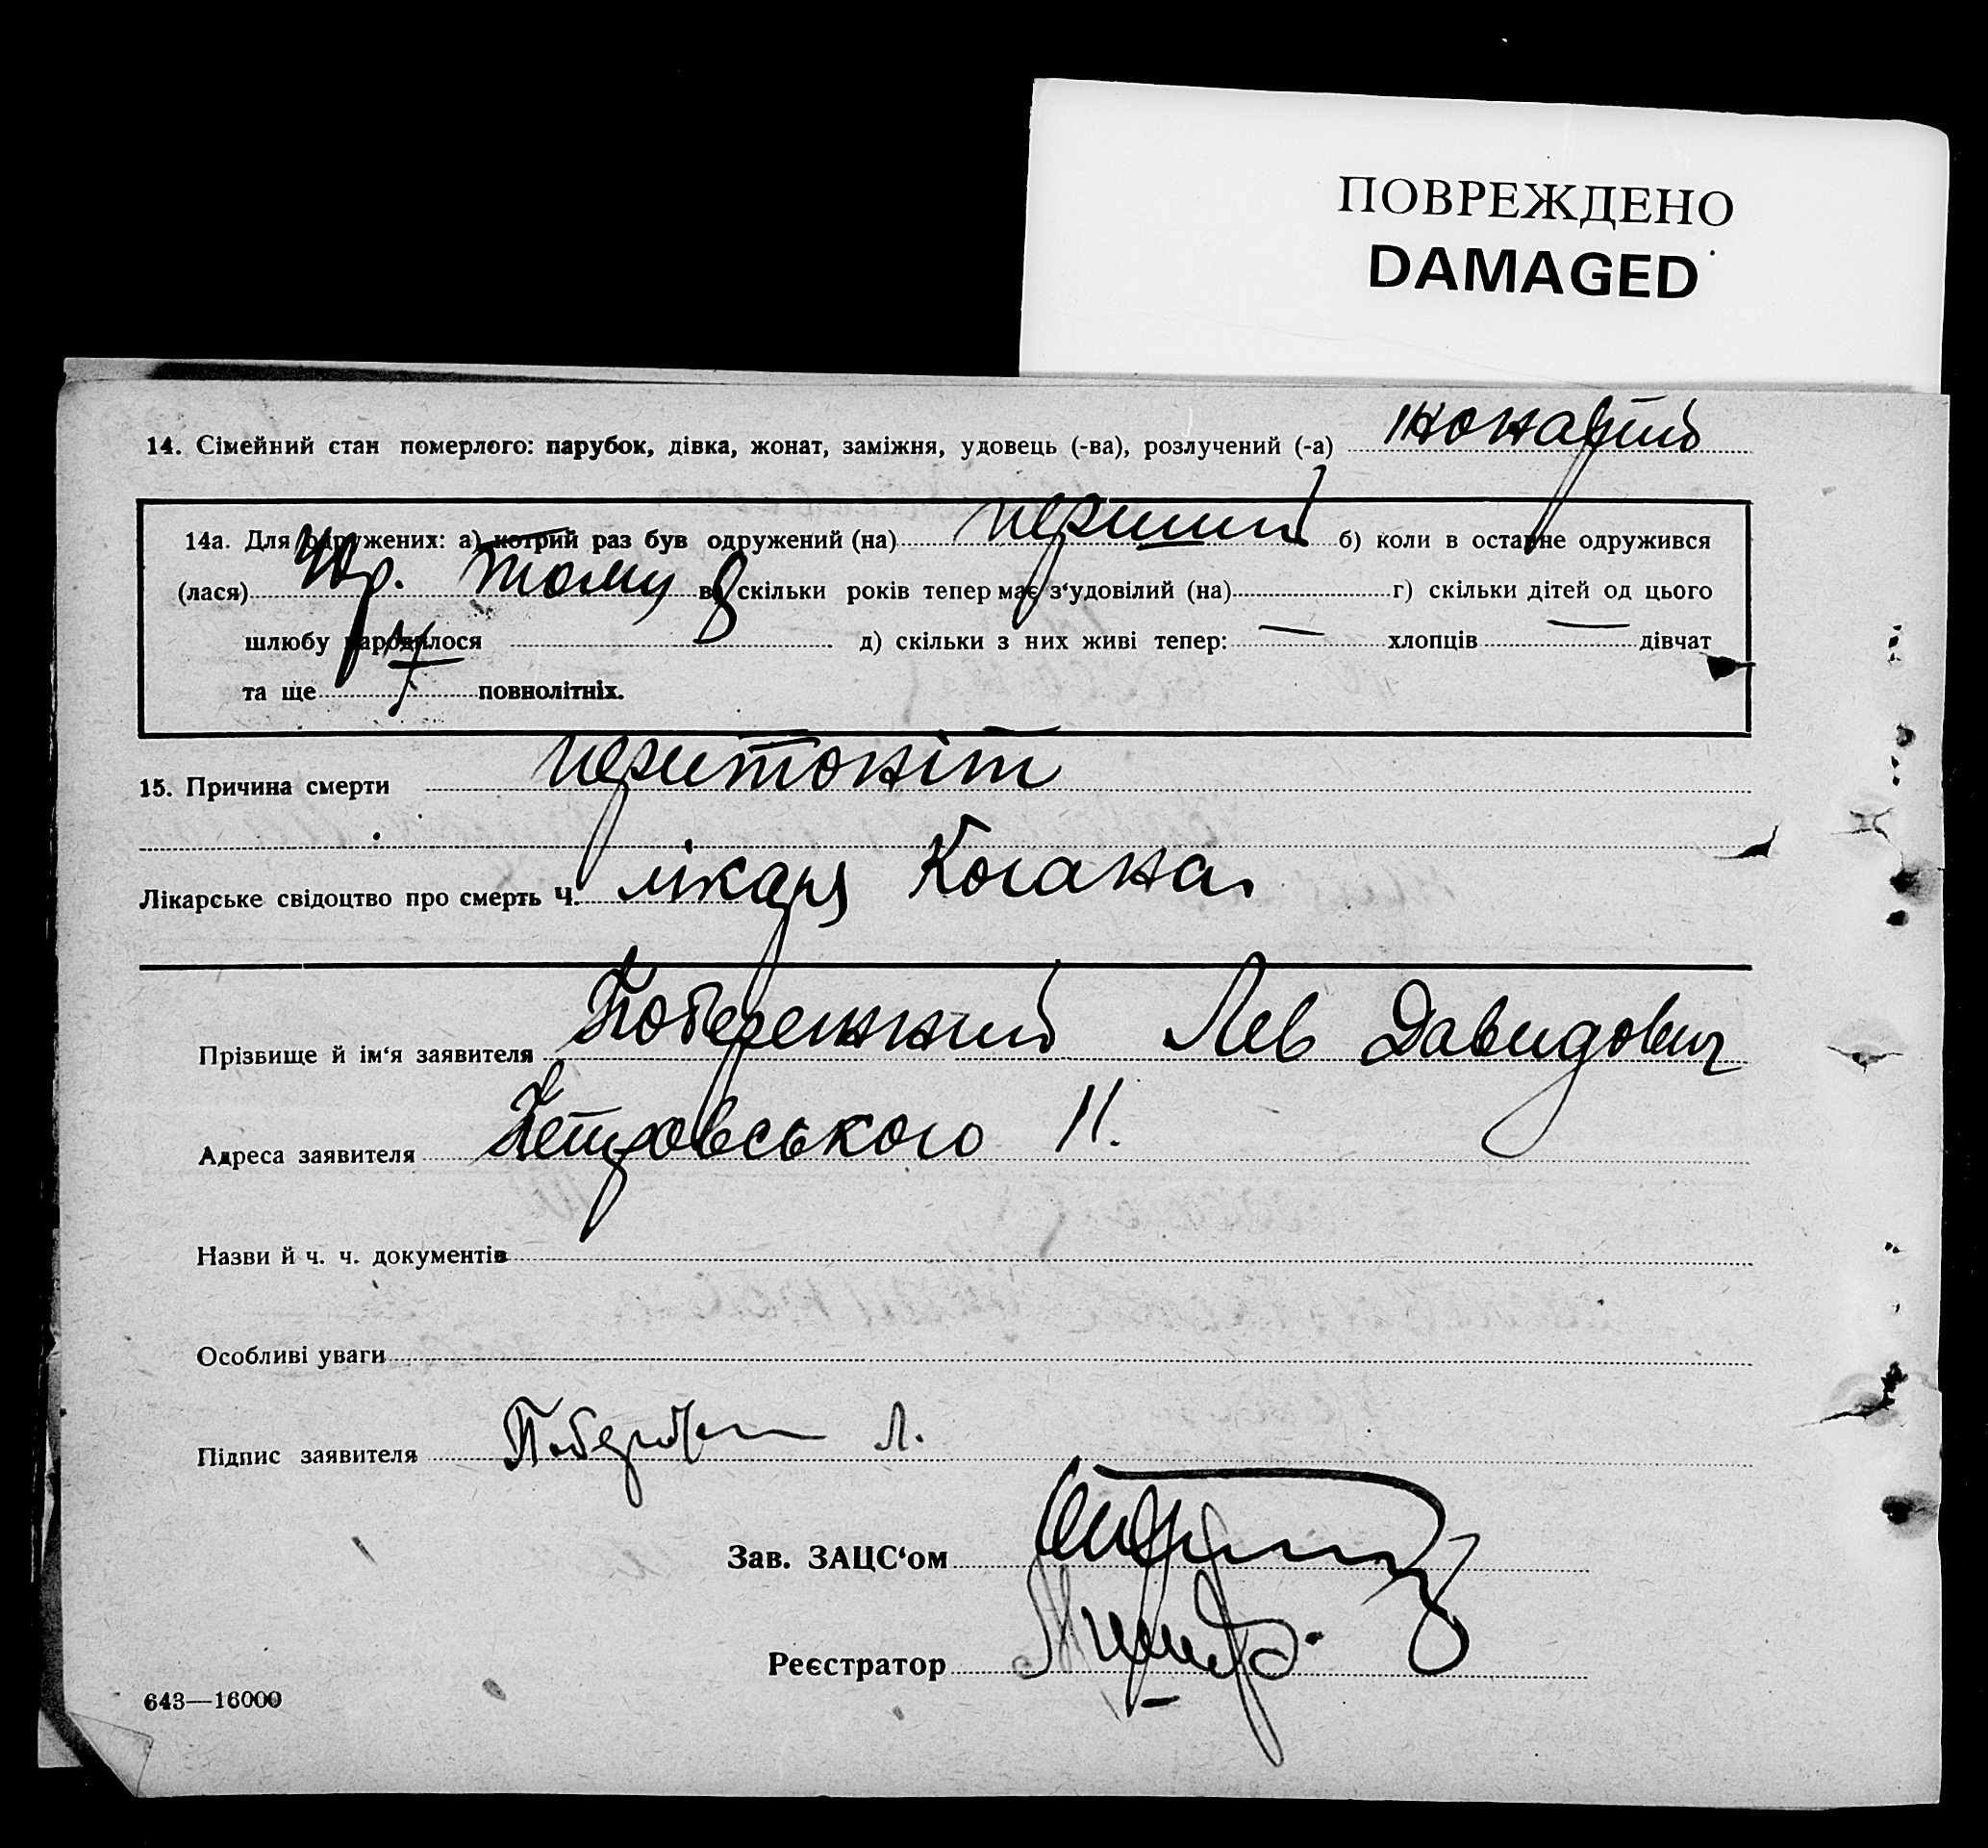 ПОВРЕЖДЕНО
DAMAGED
14. Сімейний стан померлого: парубок, дівка, жонат, заміжня, удовець (-ва), розлучений (-а) жонатий
14а. Для одружених: а) котрий раз був одружений (на) перший б) коли в останнє одружився
(лася) р. тому в) скільки років тепер має з‘удовілий (на) г) скільки дітей од цього
шлюбу народилося 8 д) скільки з них живі тепер: — хлопців — дівчат
та ще 7 повнолітніх.
15. Причина смерти перитоніт
Лікарське свідоцтво про смерть Ч. лікаря Когана
Прізвище й ім‘я заявителя Побережний Лев Давидович
Адреса заявителя Петровського 11.
Назви й ч. ч. документів
Особливі уваги
Підпис заявителя Л.
Зав. ЗАЦС‘ом
Реєстратор
643—16000